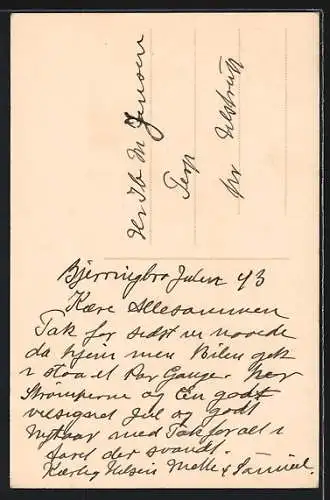 Hr Ib M Jensen
Terp
pr Ulstrup
Bjerringbro Julen 43
Kære Allesammen
Tak for sidst vi naaede
da hjem men Bilen gik
i staa et Par Gange. her
Strømperne og En godt
velsignet Jul og godt
Nytaar med Tak for alt i
aaret der svandt.
Kærlig Hilsen Mette & Samuel.